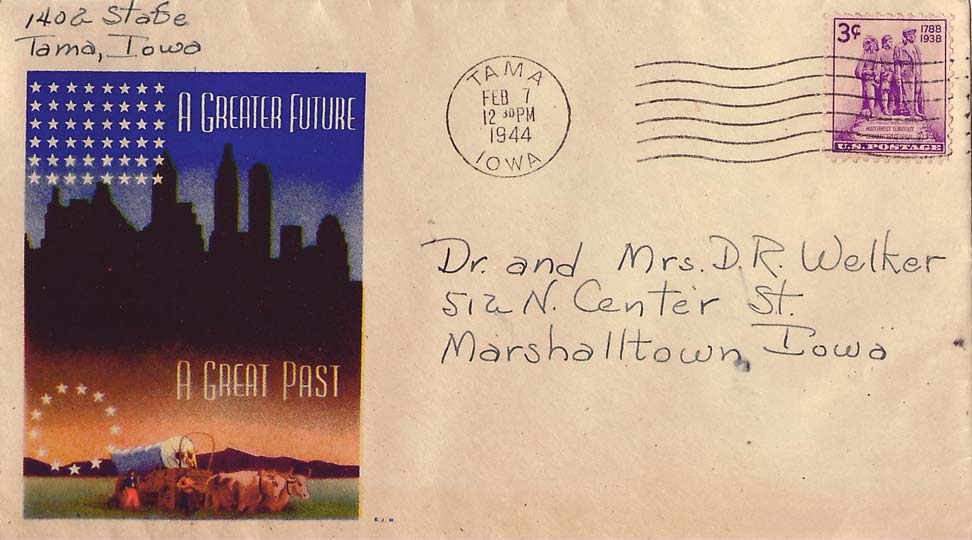 1402 State
Tama, Iowa
A GREATER FUTURE
A GREAT PAST
TAMA
FEB 7
12 30 PM
1944
IOWA
3¢
1788
1938
NORTHWEST TERRITORY
U.S. POSTAGE
Dr. and Mrs. D.R. Welker
512 N. Center St.
Marshalltown, Iowa